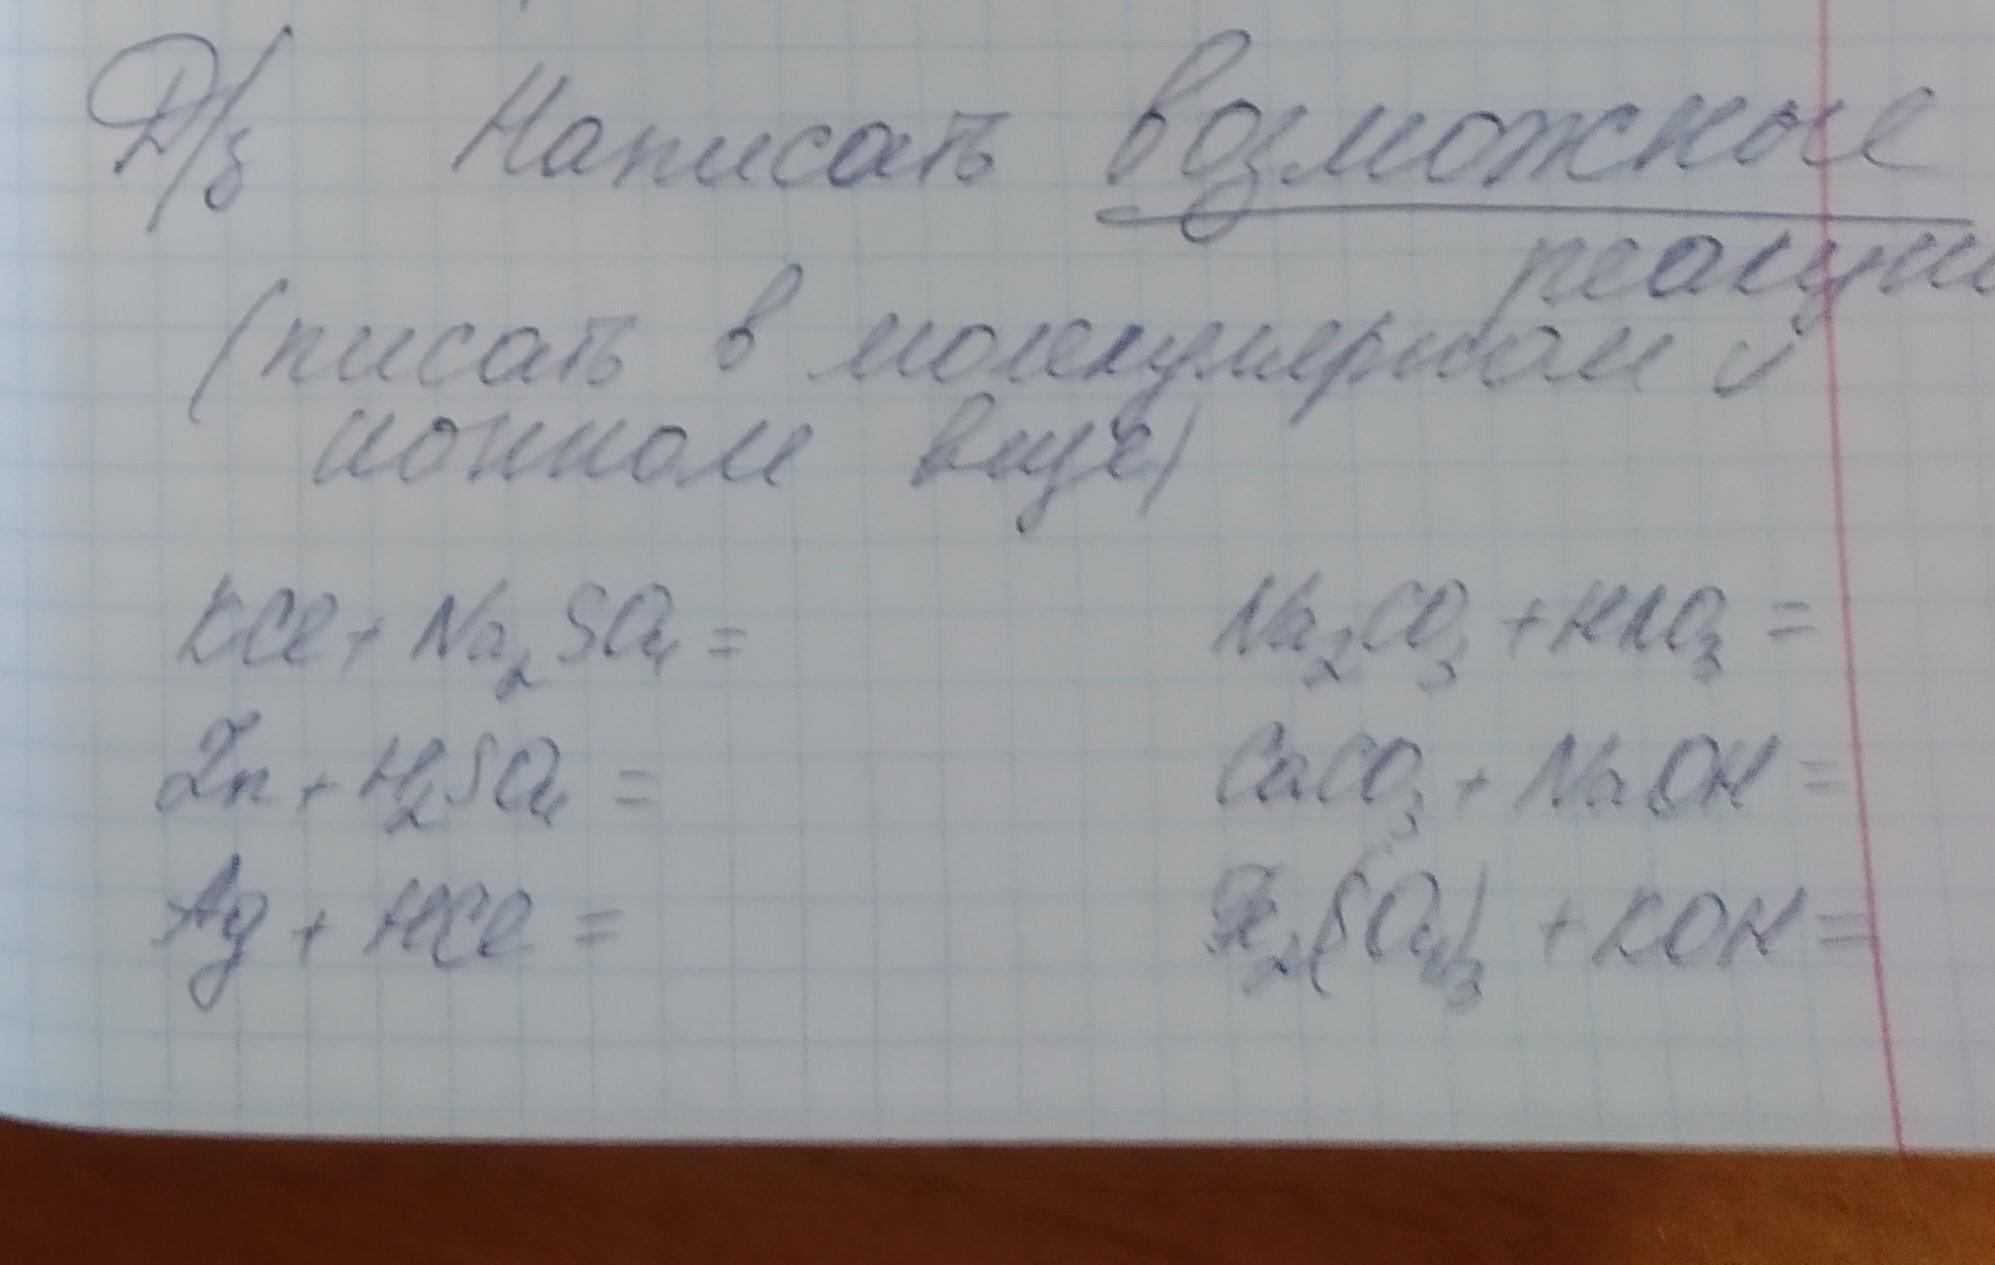 Д/з Написать возможные
реакции
(писать в молекулярном и
ионном виде)
KCl + Na₂SO₄ =
Na₂CO₃ + HNO₃ =
Zn + H₂SO₄ =
CaCO₃ + NaOH =
Ag + HCl =
Fe₂(SO₄)₃ + KOH =